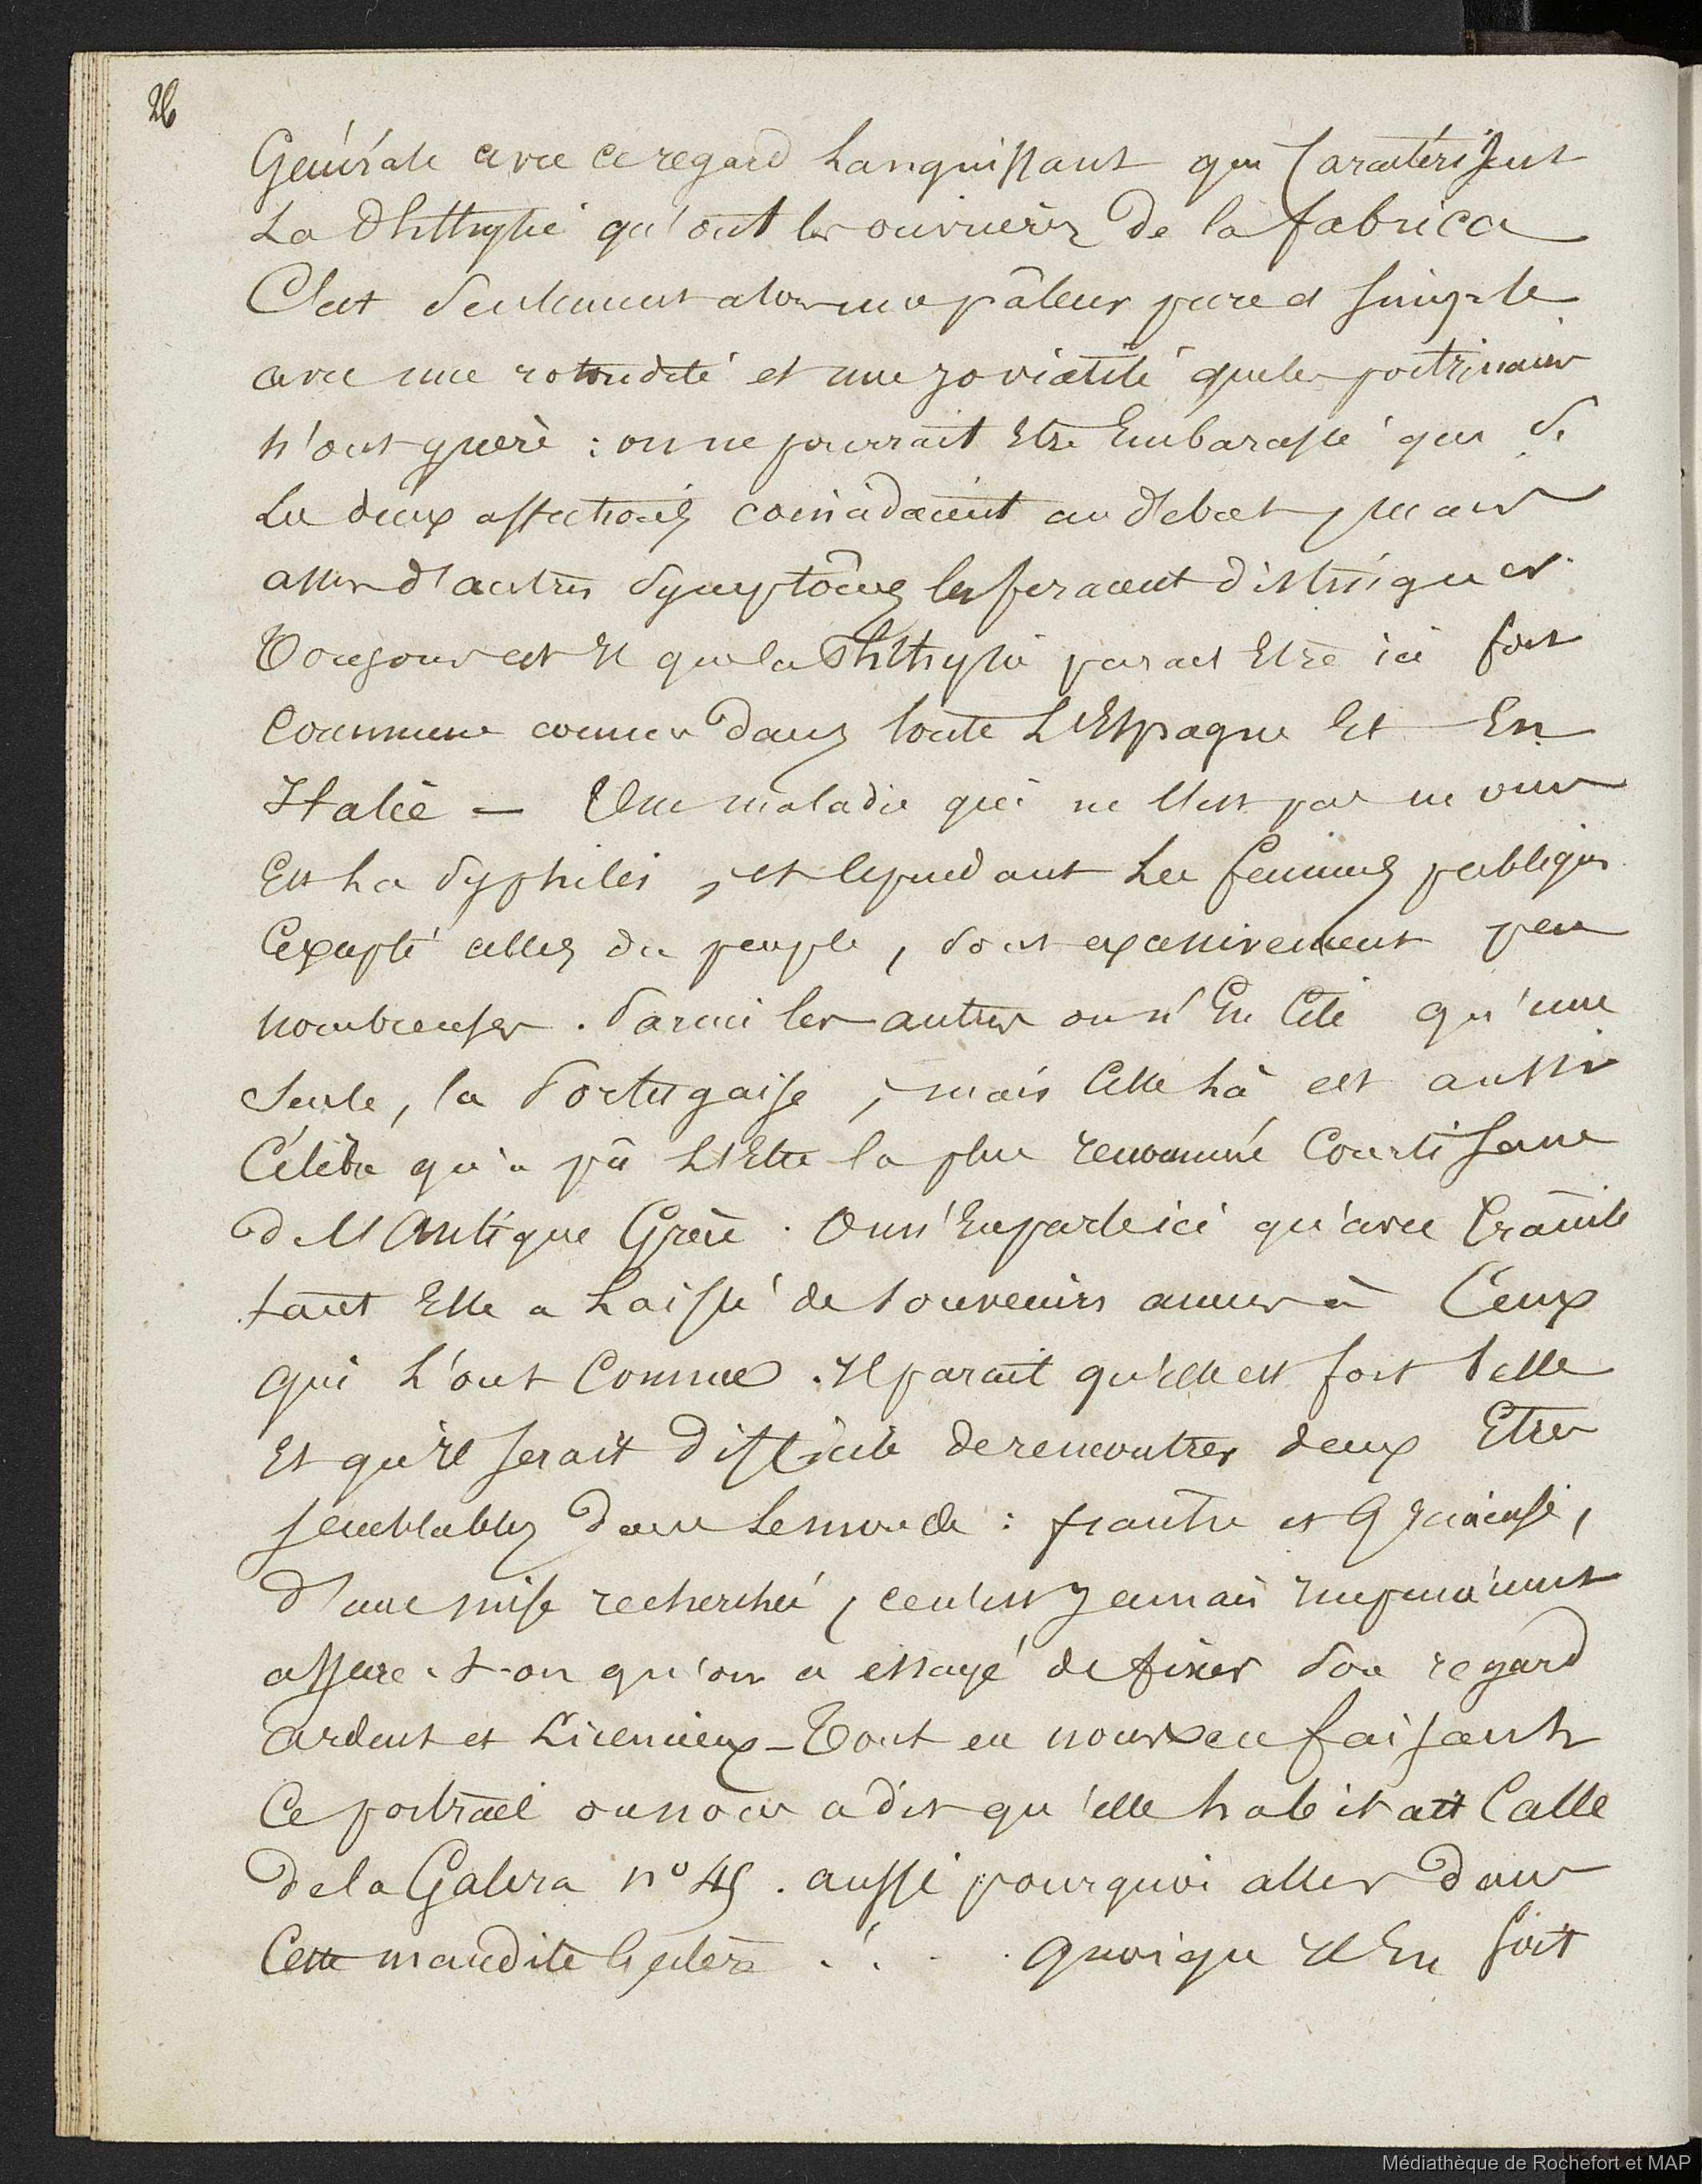 26
Générale avec ce regard Languissant qui Caractérisent
La Phtthysie qu'ont les ouvrières de la fabrica
C'est seulement alors une pâleur pure et simple
avec une rotondité et une jovialité que les poitrinaires
n'ont guère : on ne pourrait Etre Embarassé que si
Les deux affections coincidaient au début, mais
alors d'autres symptômes les feraient distinguer
Toujours est Il que la Phthysie parait Etre ici fort
Commune comme dans toute L'Espagne Et En
Italie — Une maladie qui ne l'est pas moins
Est La syphilis, et cependant Les femmes publiques
Excepté celles du peuple, sont excessivement peu
nombreuses. Parmi les autres on n'En Cite qu'une
Seule, la Portugaise, mais Celle là est aussi
Célèbre qu'a pû L'Etre la plus renommée Courtisane
de l'Antique Grèce. On n'En parle ici qu'avec Crainte
tant Elle a Laissé de souvenirs amers à Ceux
qui L'ont Connue. Il parait qu'elle est fort belle
Et qu'il serait difficile de rencontrer deux Etres
semblables dans Le monde : fraiche et gracieuse,
d'une mise recherchée, ce n'est jamais impunément
assure-t-on qu'on a essayé de fixer son regard
ardent et Licencieux - Tout en nous en faisant
Ce portrait on nous a dit qu'elle habitait Calle
de la Galera n° 45. aussi pourquoi aller dans
Cette maudite Galera . ! . . quoique Il En soit
Médiathèque de Rochefort et MAP